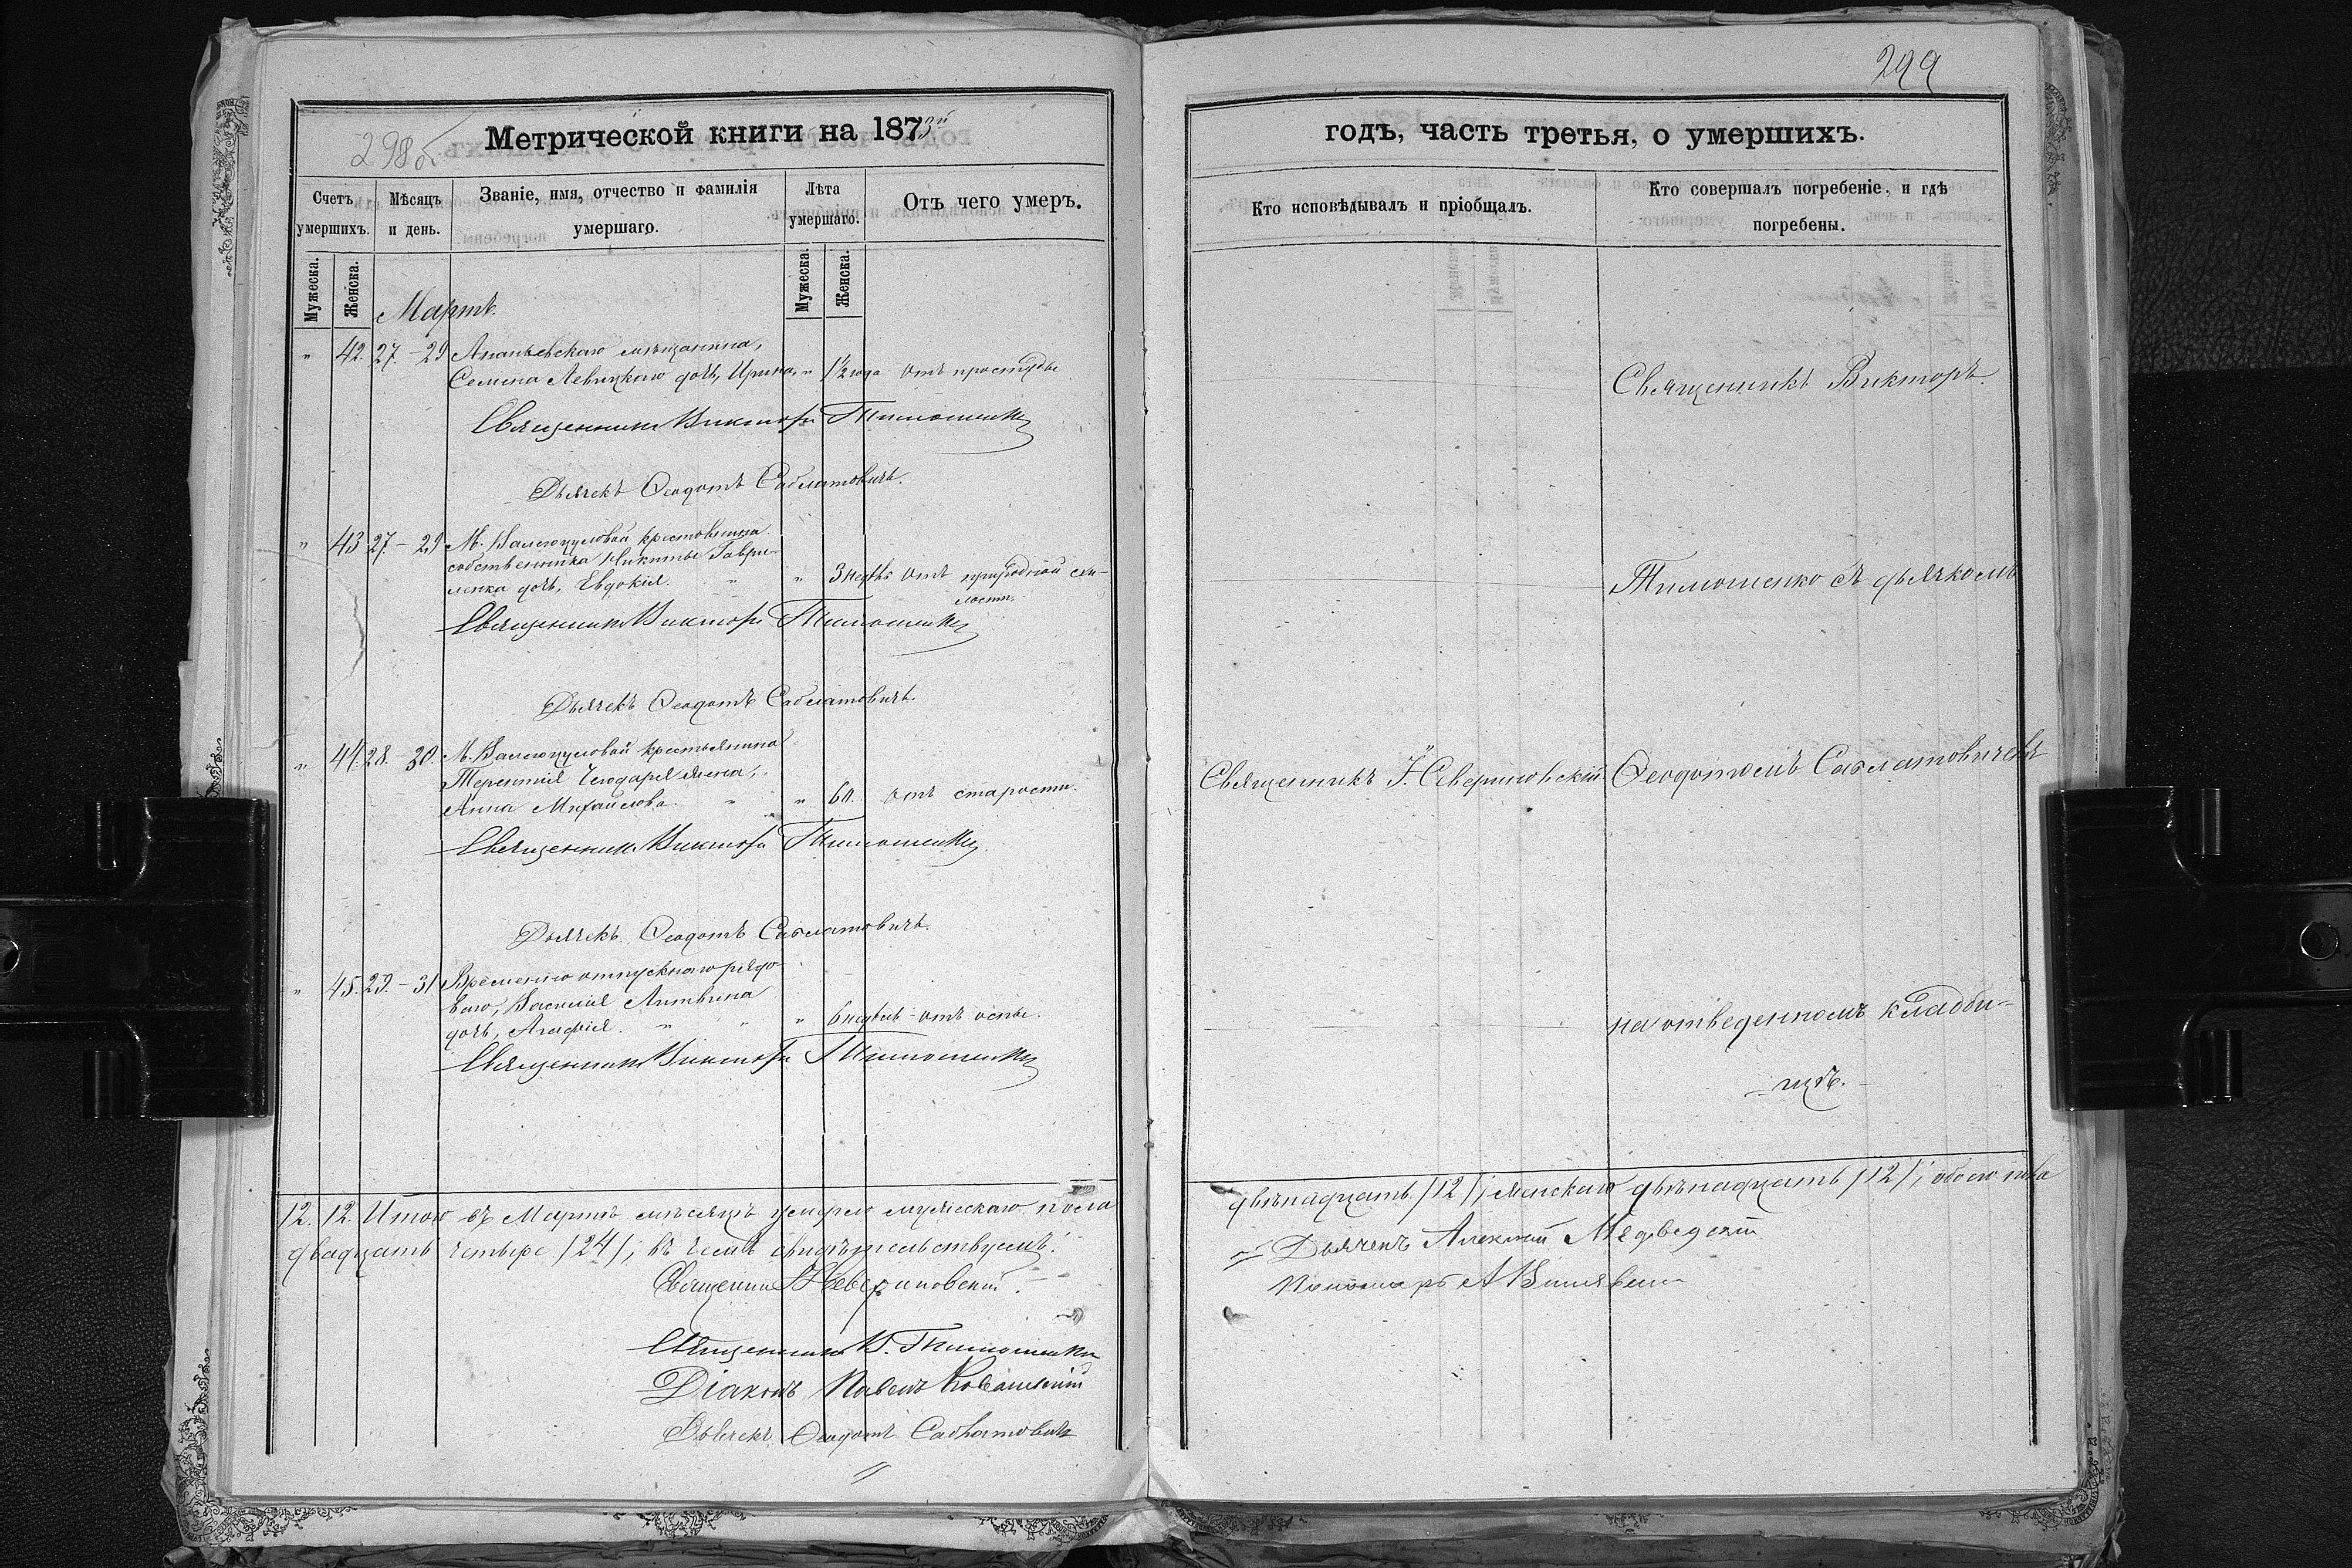 298об
Метрической книги на 1873й
Счетъ умершихъ.
Мѣсяцъ и день.
Званіе, имя, отчество и фамилія умершаго.
Лѣта умершаго.
Отъ чего умеръ.
Мужеска. Женска. Мужеска. Женска.
Мартъ.
" 42. 27. – 29 Ананьевскаго мѣщанина,
Семена Левицкаго дочь, Ирина, " 1½ года отъ простуды
Священникъ Викторъ Тимошенко
Дьячекъ Ѳеодотъ Саблатовичъ.
" 43 27 – 29 М. Валегоцуловой крестьянина
собственника Никиты Гаври-
ленка дочь, Евдокія. " " 3 недѣ. отъ природной сла-
бости.
Священникъ Викторъ Тимошенко
Дьячекъ Ѳеодотъ Саблатовичъ.
" 44. 28. – 30. М. Валегоцуловой крестьянина
Терентія Чеюдаря жена,
Анна Михайлова. " " 60. отъ старости.
Священникъ Викторъ Тимошенко
Дьячекъ Ѳеодотъ Саблатовичъ.
" 45. 29. – 31 Временно отпускнаго рядо-
ваго, Василія Литвина
дочь, Агафія. " " " 6 недѣль отъ оспы.
Священникъ Викторъ Тимошенко
12. 12. Итого въ Мартѣ мѣсяцѣ умерло мужескаго пола
двадцать четыре /24/; въ чемъ свидѣтельствуемъ:
Священникъ І. Севериновскій.
Священникъ В. Тимошенко
Діаконъ Павелъ
Дьячекъ Ѳеодотъ Саблатовичъ
299
годъ, часть третья, о умершихъ.
Кто исповѣдывалъ и пріобщалъ.
Кто совершалъ погребеніе, и гдѣ погребены.
Священникъ Викторъ
Тимошенко съ дьячкомъ
Священникъ І. Севериновскій Ѳеодотомъ Саблатовичемъ
на отведенномъ кладби-
щѣ.
двѣнадцать /12/; женскаго двѣнадцать /12/; обоего пола
Дьячекъ Алексѣй
Пономарь А